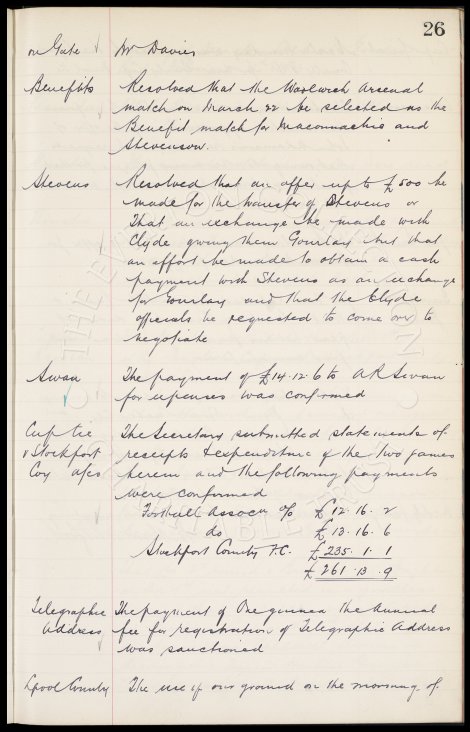 26
on Gate Mr Davies
Benefits Resolved that the Woolwich Arsenal
match on March 22 be selected as the
Benefit match for Maconnachie and
Stevenson.
Stevens Resolved that an offer up to £500 be
made for the transfer of Stevens or
that an exchange be made with
Clyde giving them Gourlay but that
an effort be made to obtain a cash
payment with Stevens as an exchange
for Gourlay and that the Clyde
officials be requested to come over to
negotiate
Swan The payment of £14.12.6 to A R Swan
for expenses was confirmed
Cup tie The Secretary submitted statements of
v Stockport receipts & expenditure of the two games
Coy a/cs herein and the following payments
were confirmed
Football Assocn % £12.16.2
do £13.16.6
Stockport County F.C. £235.1.1
£261.13.9
Telegraphic The payment of One guinea the Annual
Address fee for registration of Telegraphic Address
was sanctioned
Lpool County The use of our ground on the morning of